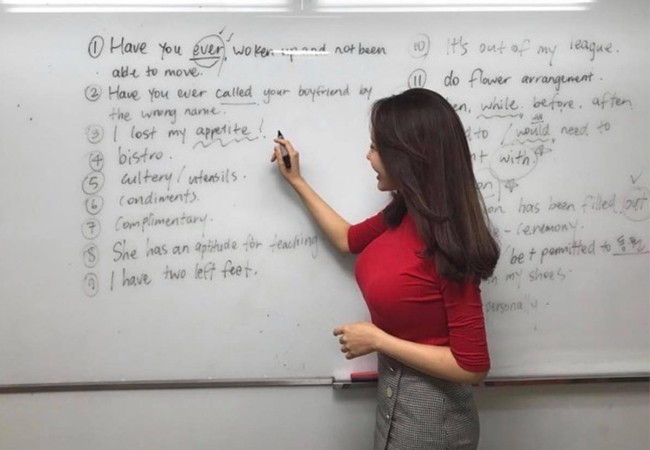 ① Have you ever woken up and not been
able to move.
② Have you ever called your boyfriend by
the wrong name.
③ I lost my appetite!
④ bistro.
⑤ cultery/utensils.
⑥ condiments.
⑦ Complimentary.
⑧ She has an aptitude for teaching
⑨ I have two left feet.
⑩ It's out of my league.
⑪ do flower arrangement.
while. before. after
to / would need to
with
has been filled out
- ceremony.
be permitted to
my shoes.